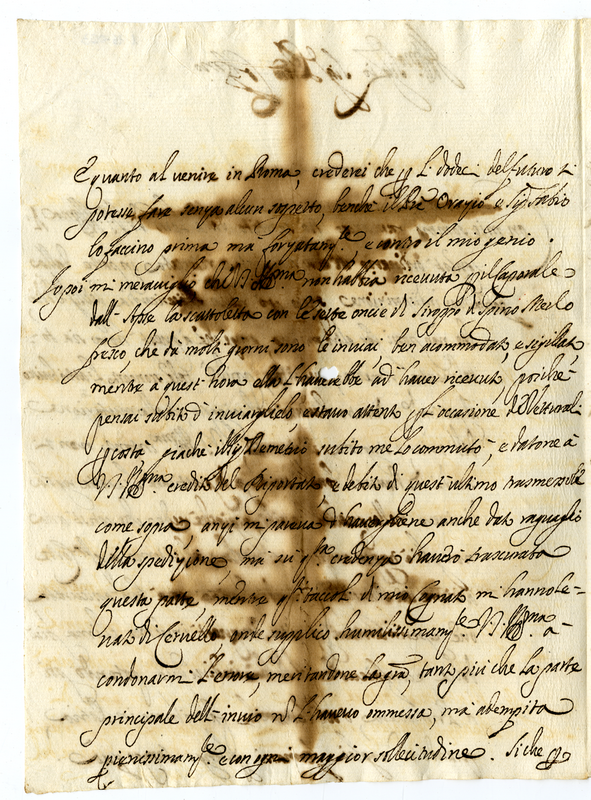 E quanto al venire in Roma, crederei che p li dodeci del futuro si
potesse fare senza alcun sospetto, benche il Pre Orazio e Sig.r Fabio
lo faccino prima ma forzatam.te e contro il mio genio.
Io poi mi meraviglio che V.S. Ill.ma non habbia ricevuta p il Caporale
dall' Apse la scattoletta con le sette oncie di Siroppo di Spino Merlo
fresco che da molti giorni sono le inviai, ben acommodata, e sigillata,
mentre a quest' hora ella l' haverebbe ad' haver ricevuta, poiche
pensai subito d' inviarglielo, e stavo attento p l' occasione de Vetturali
p costà, giache Demetrio subito me lo commutò, e datone à
V.S. Ill.ma credito del Riportato e debito di quest' ultimo trasmessole
come sopra, anzi mi pareva d' havergliene anche dato raguaglio
della spedizione, ma su q.sta credenza haverò trascurata
questa parte, mentre q.sti taccoli di mio Cognato mi hanno le=
vato di Cervello, onde supplico humilissimam.te V.S. Ill.ma a
condonarmi l' errore, meritandone la gra, tanto più che la parte
principale dell' invio nō l' havevo ommessa, mà adempita
pienissimam.te e con ogni maggior sollecitudine. Siche p